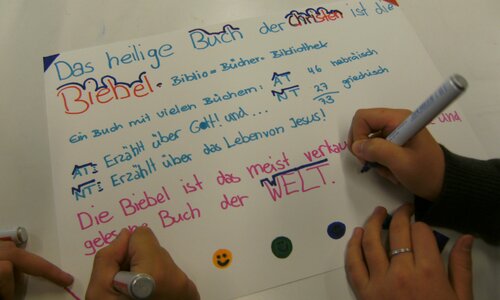 Das heilige Buch der Christen ist die
Biebel. Biblio = Bücher = Bibliothek
Ein Buch mit vielen Büchern: AT 46 hebräisch
NT 27 griechisch
73
AT: Erzählt über Gott! und...
NT: Erzählt über das Leben von Jesus!
Die Biebel ist das meist und
Buch der WELT.